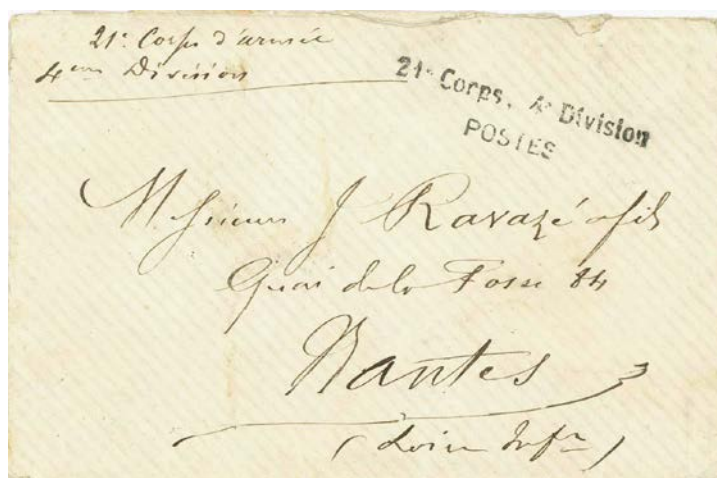 21e Corps d'armée
4eme Division
21e Corps. 4e Division
POSTES
Messieurs J Ravazé & fils
Quai de la Fosse 84
Nantes
(Loire Infre)